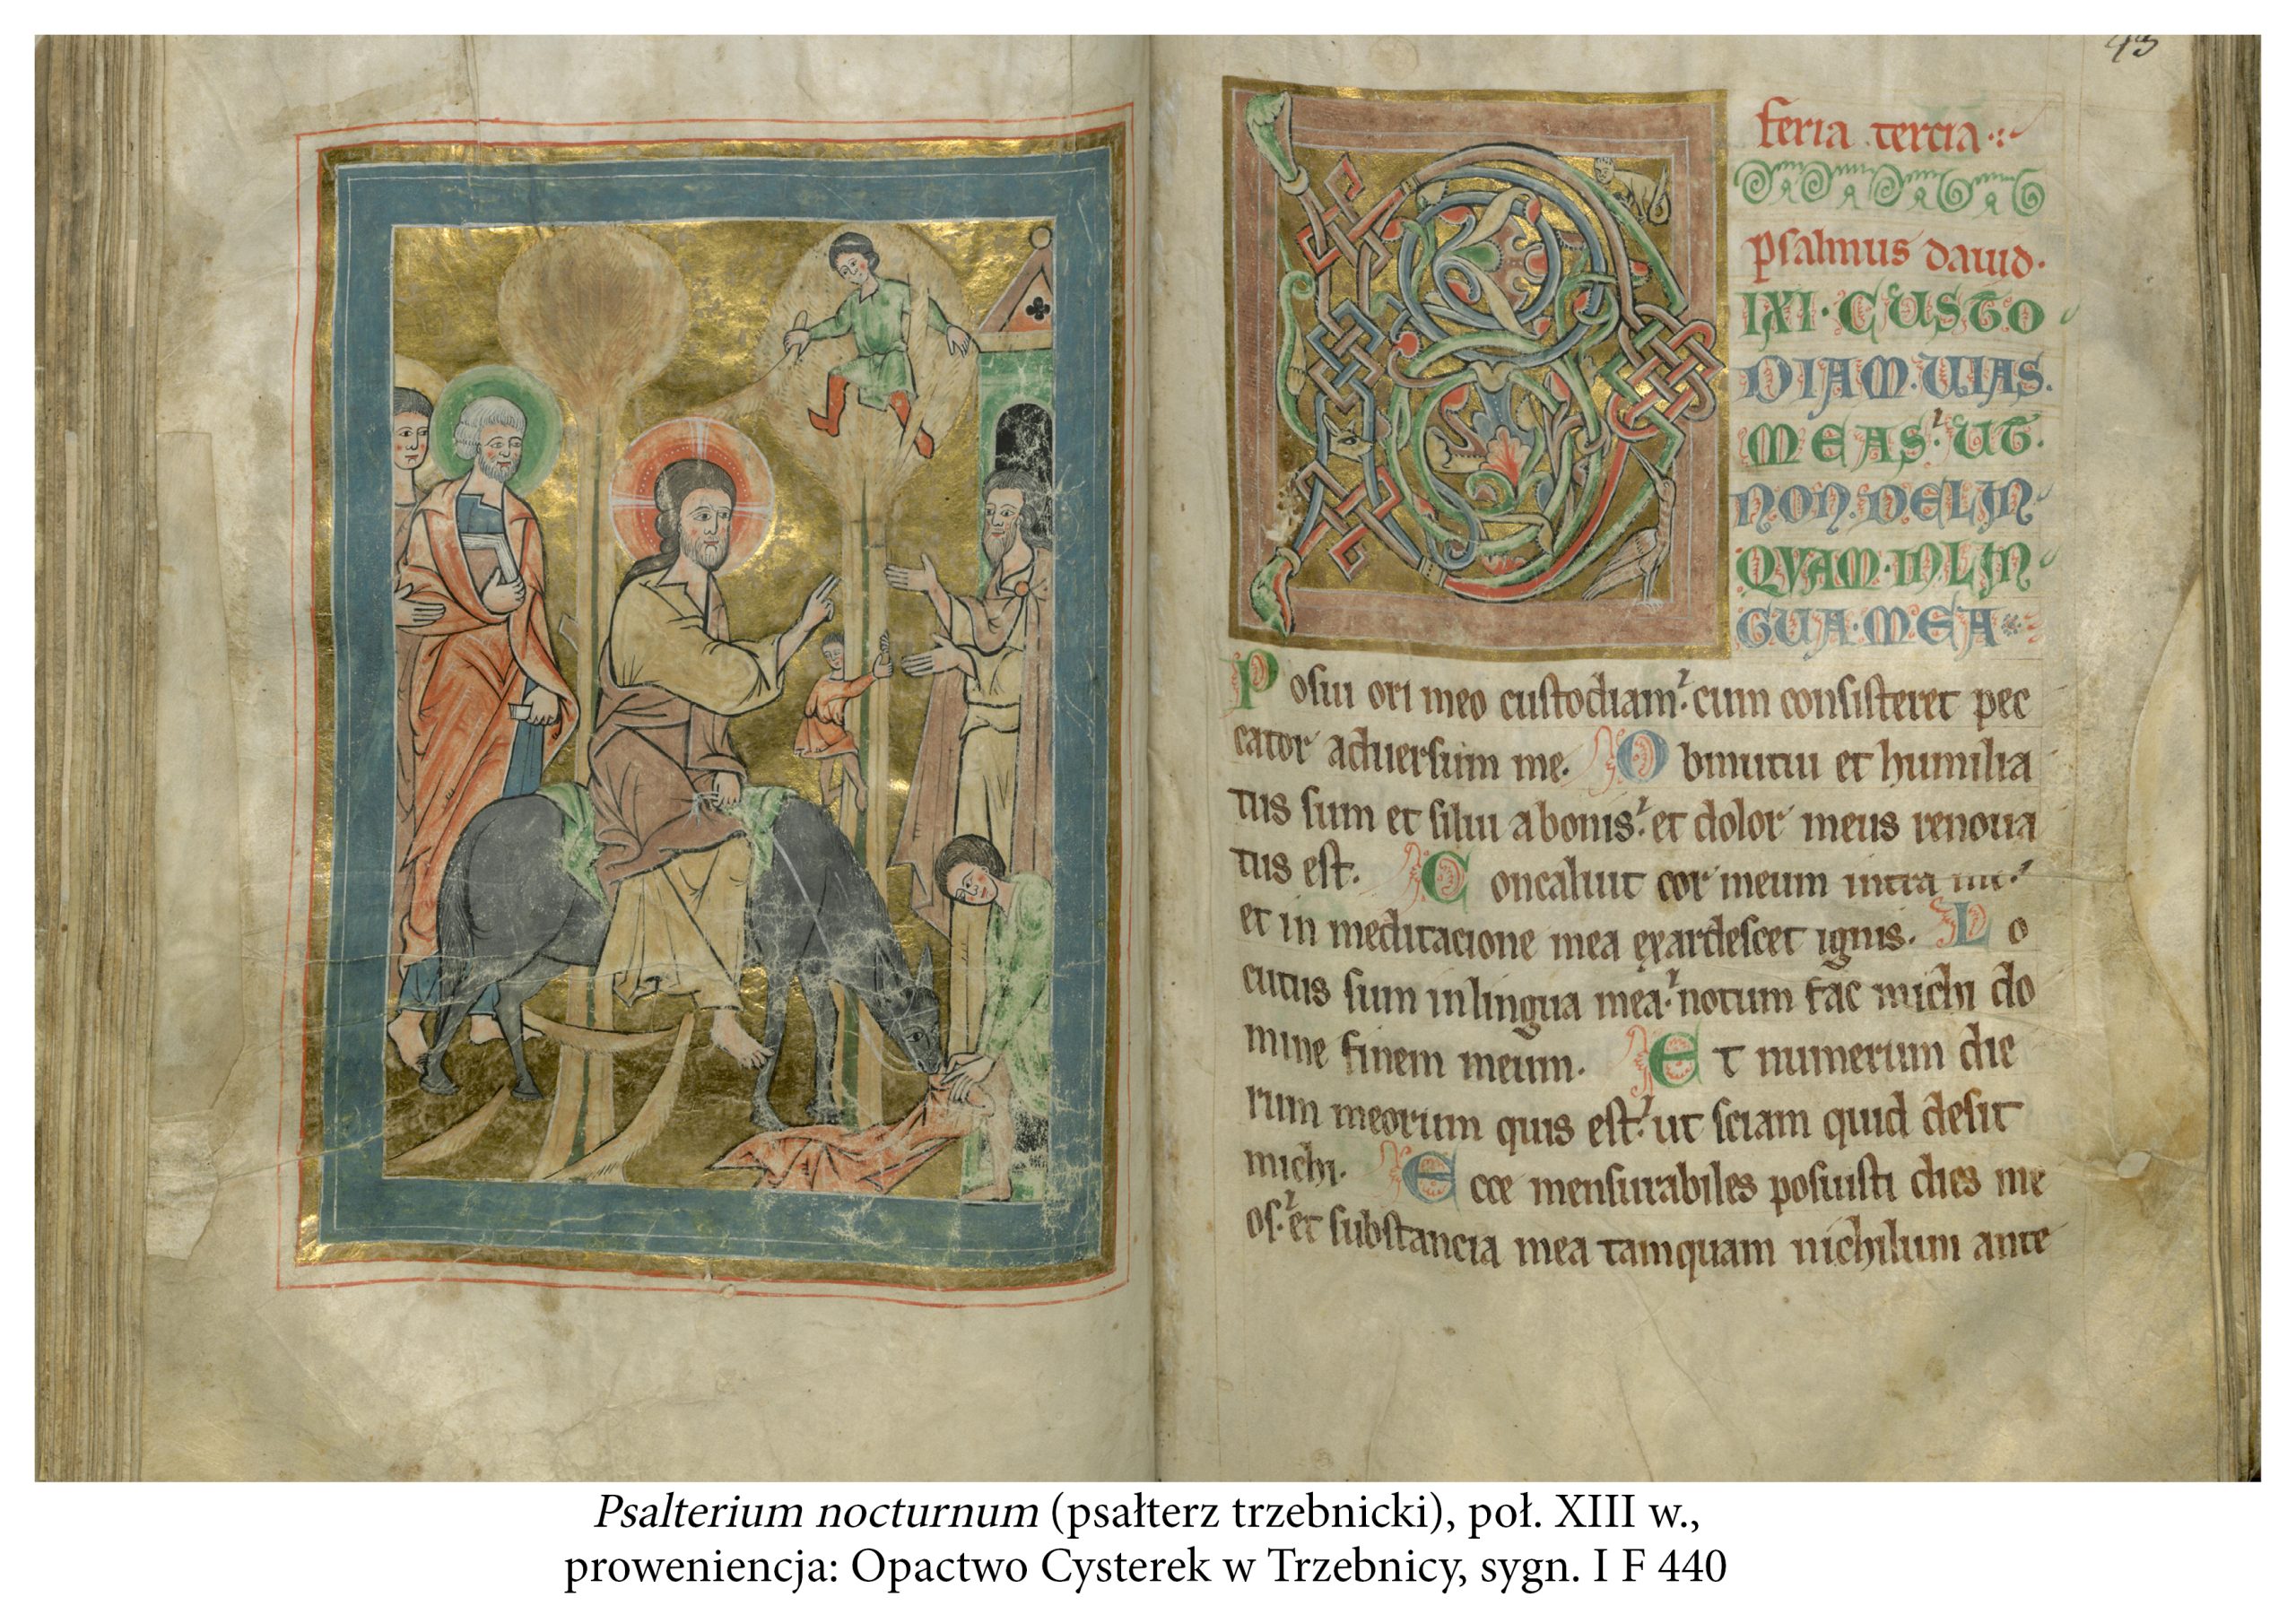 43
feria tercia
psalmus dauid.
D IXI. CUSTO
DIAM. UIAS.
MEAS. UT.
NON. DELIN
QVAM. IN LIN
GUA. MEA
Posui ori meo custodiam. cum consisteret pec
cator aduersum me. Obmutui et humilia
tus sum et silui a bonis. et dolor meus renoua
tus est. Concaluit cor meum intra me.
et in meditacione mea exardescet ignis. Lo
cutus sum in lingua mea. notum fac michi do
mine finem meum. Et numerum die
rum meorum quis est. ut sciam quid desit
michi. Ecce mensurabiles posuisti dies me
os. et substancia mea tamquam nichilum ante
Psalterium nocturnum (psałterz trzebnicki), poł. XIII w.,
proweniencja: Opactwo Cysterek w Trzebnicy, sygn. I F 440